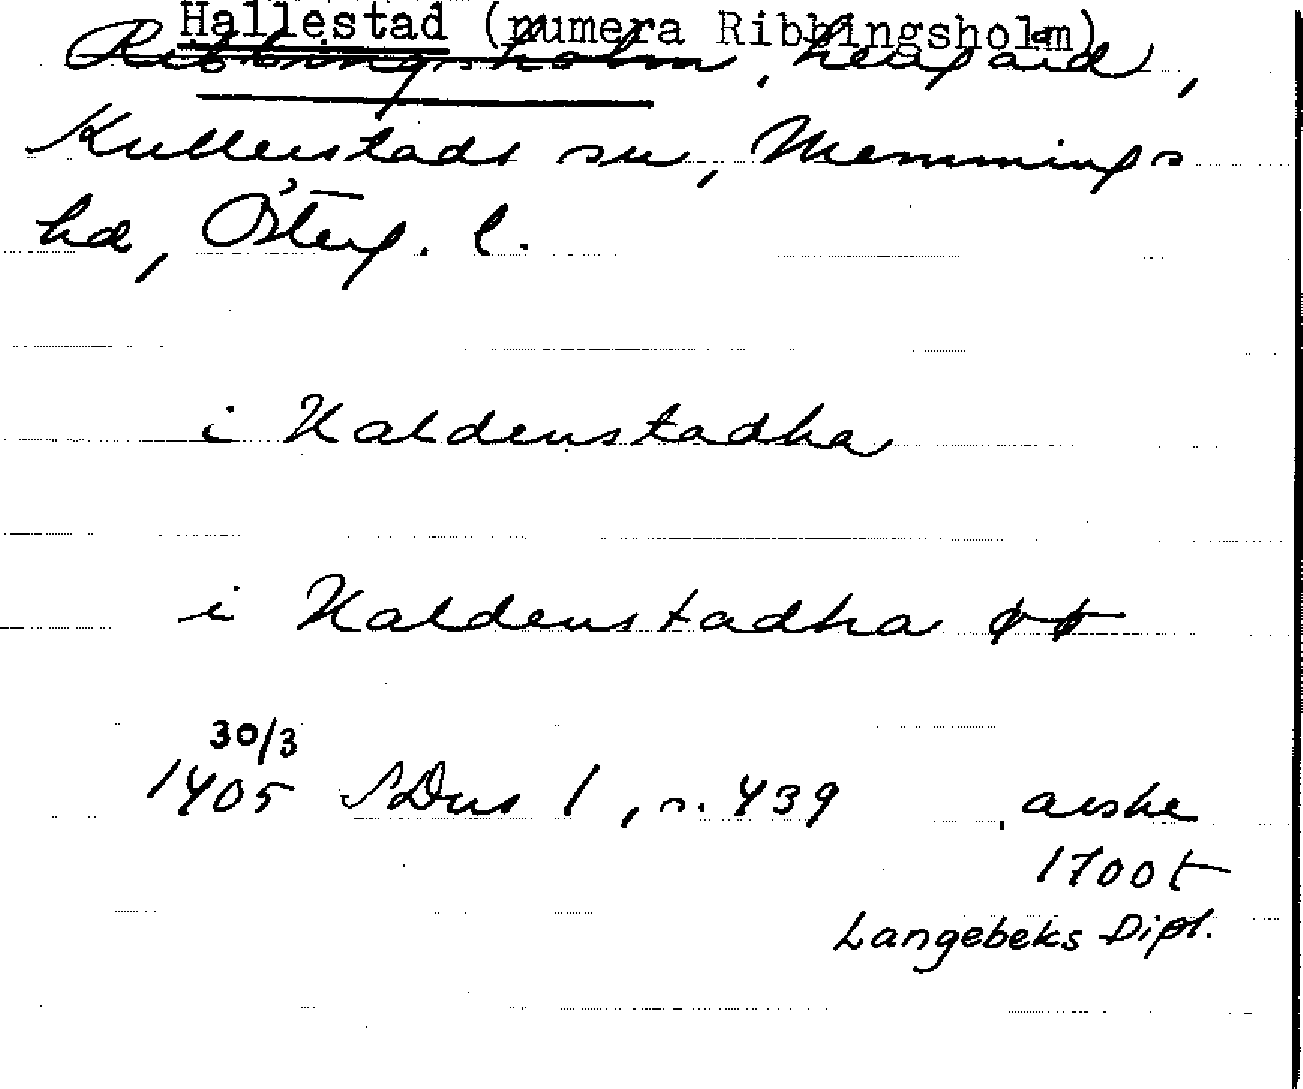 Hallestad (numera Ribbingsholm)
Ribbingsholm, herrgård,
Kullerstads sn, Memmings
hd, Österg. l.
i Haldenstadha
i Haldenstadha
30/3
1405 SDns 1, n. 439, avskr
1700t
Langebeks Dipl.